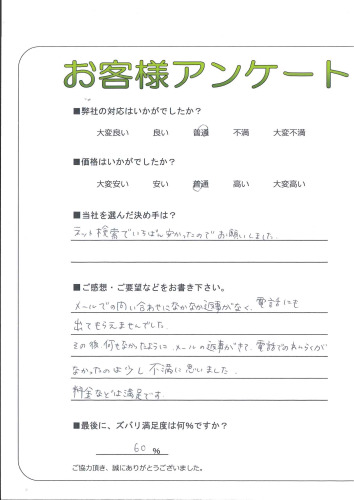 お客様アンケート
■弊社の対応はいかがでしたか？
大変良い 良い 普通 不満 大変不満
■価格はいかがでしたか？
大変安い 安い 普通 高い 大変高い
■当社を選んだ決め手は？
ネット検索でいちばん安かったのでお願いしました.
■ご感想・ご要望などをお書き下さい。
メールでの問い合わせになかなか返事がなく、電話にも
出てもらえませんでした.
その後、何もなかったように、メールの返事がきて、電話での
なかったのは少し不満に思いました.
料金などは満足です.
■最後に、ズバリ満足度は何%ですか？
60 %
ご協力頂き、誠にありがとうございました。